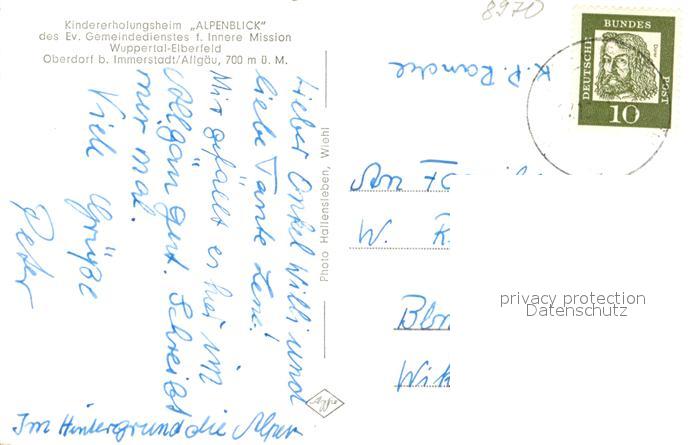 8970
Kindererholungsheim „ALPENBLICK"
des Ev. Gemeindedienstes f. Innere Mission
Wuppertal-Elberfeld
Oberdorf b. Immerstadt/Allgäu, 700 m ü. M.
Lieber Onkel Willi und
liebe Tante Leni!
Mir gefällt es hier im
Allgäu gut. Schreibt
mir mal.
Viele Grüße
Peter
Im Hintergrund die Alpen
Photo Hallensleben, Wiehl
DEUTSCHE BUNDES POST
10
K. P.
An
W.
privacy protection
Datenschutz